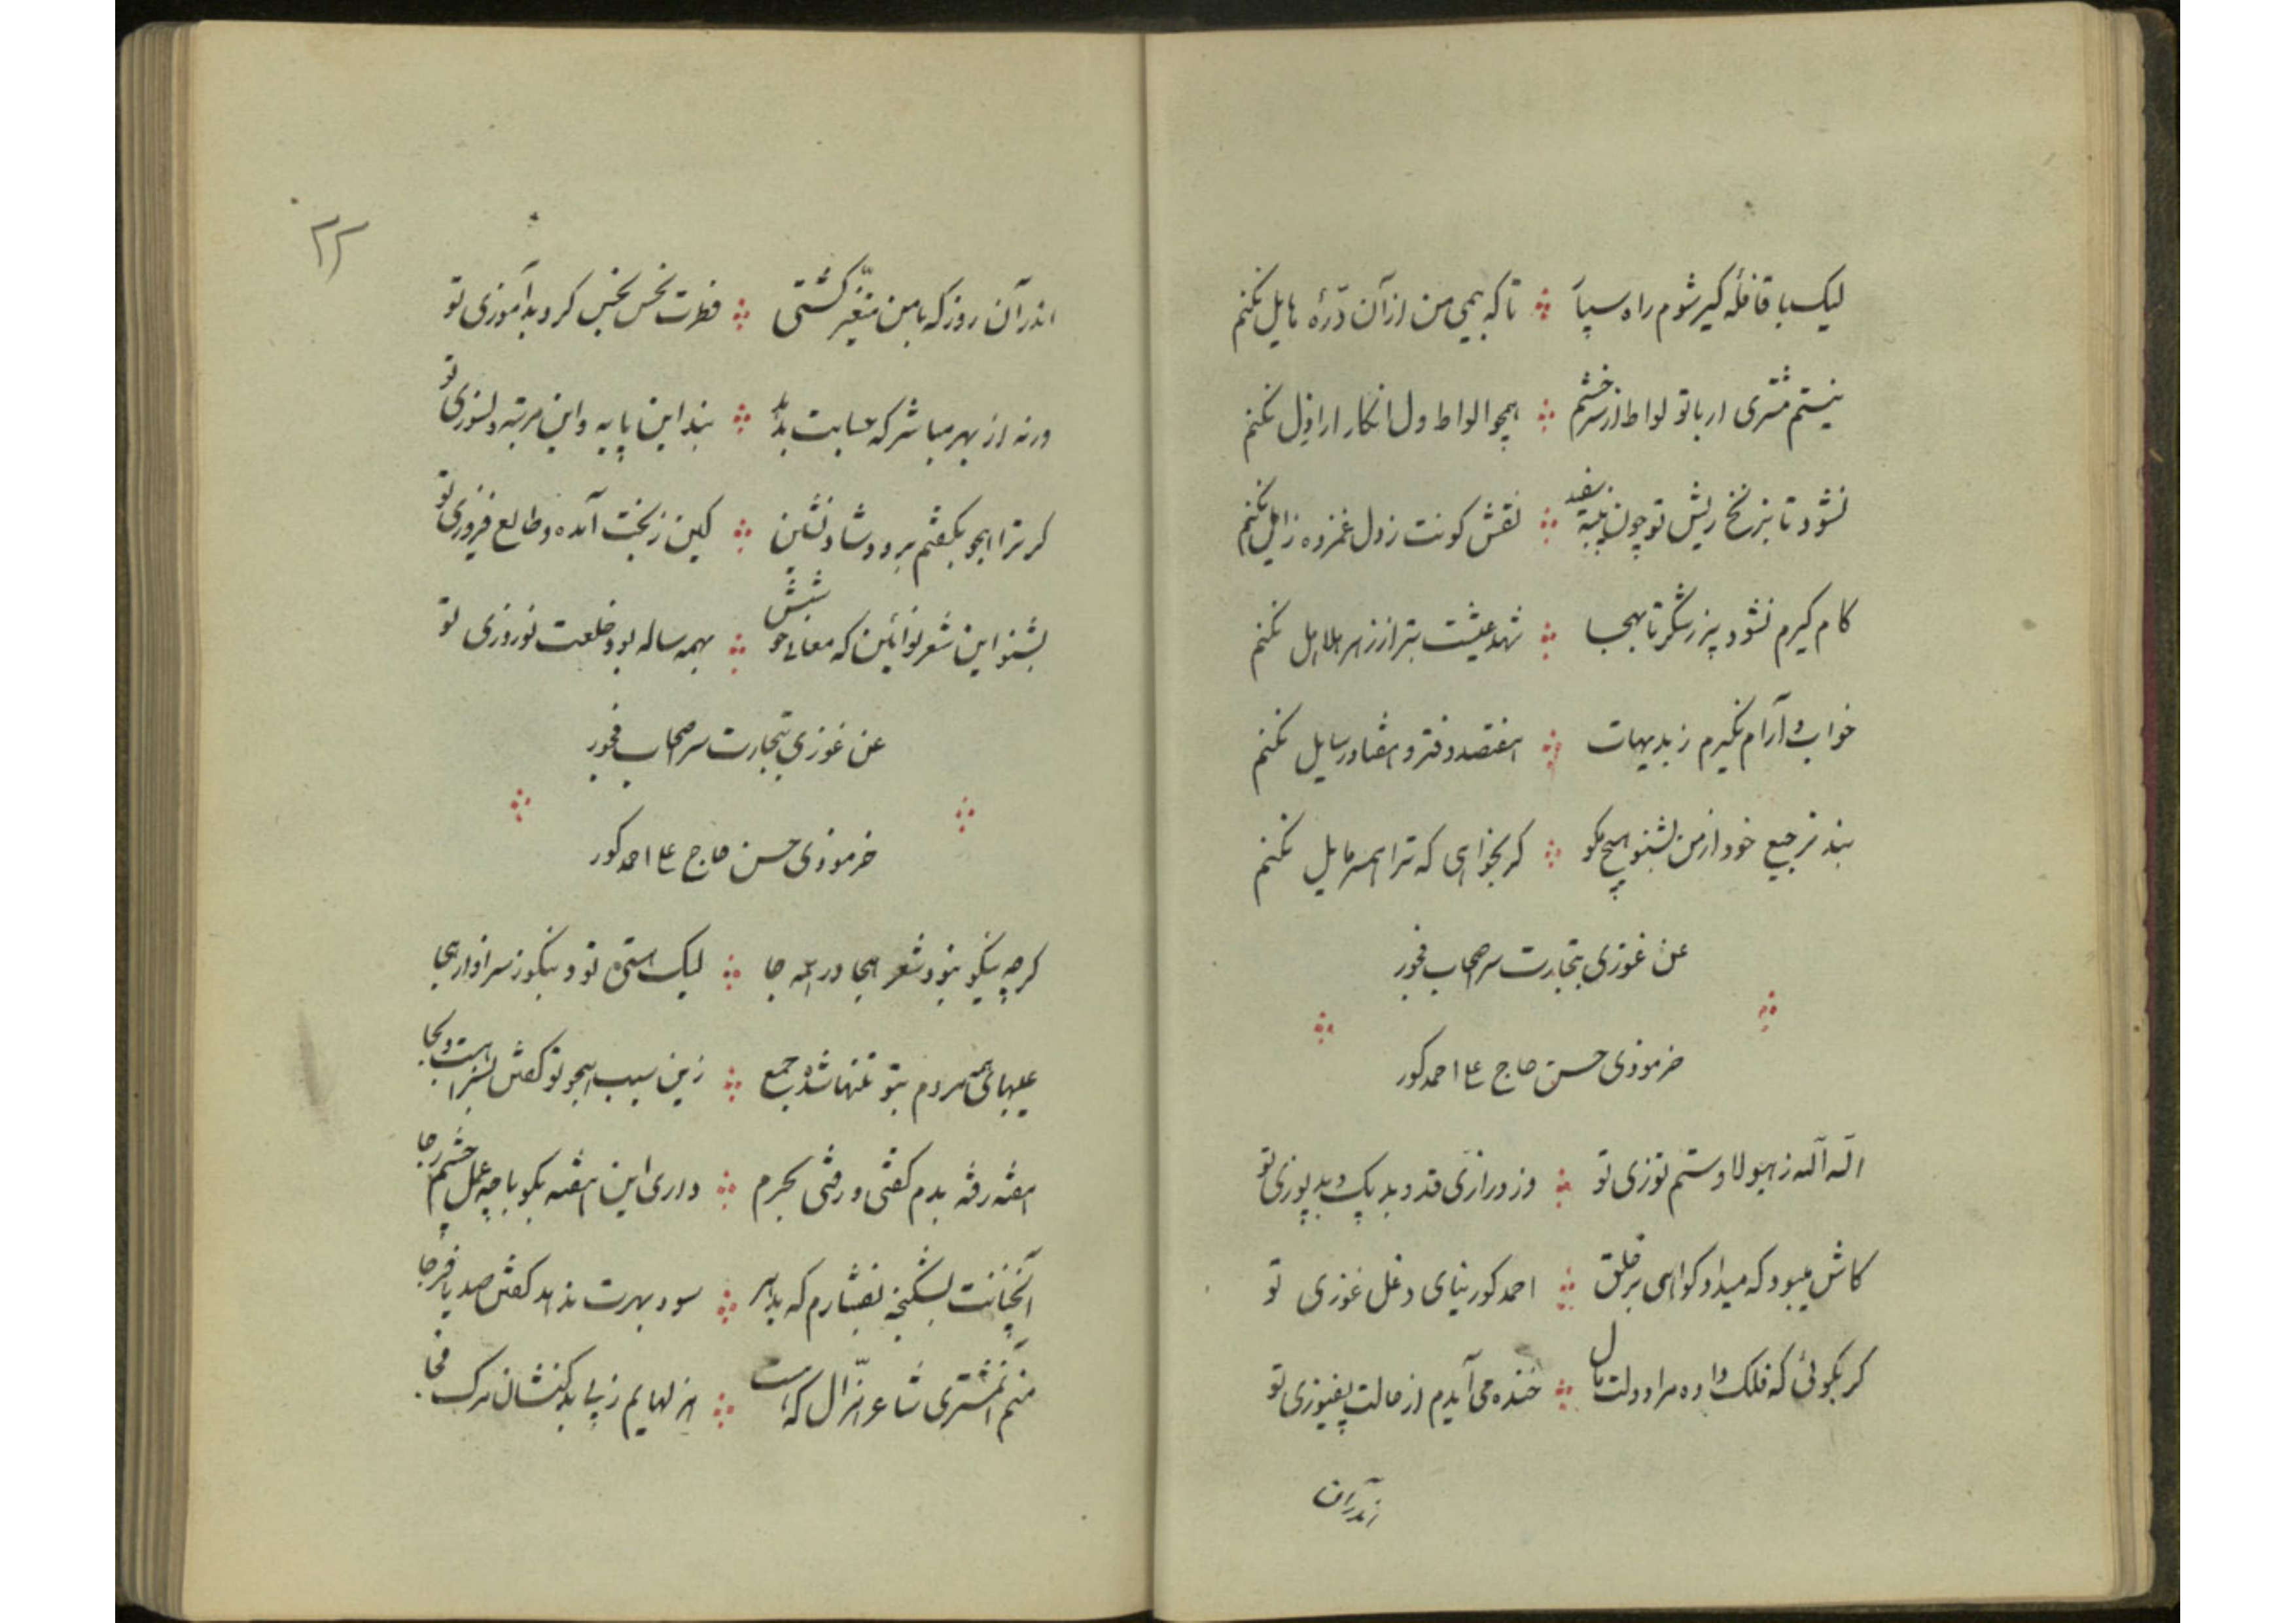 لیک با قافله گیر شوم راه سپا تا که همی من از آن درّهٔ مایل نکنم
نیستم مشتری ار با تو لواط از سر خشم همچو الواط ول انکار اراذل نکنم
نشود تا بزنخ ریش تو چون پنبه سفید نقش کونت ز دل غمزده زایل نکنم
کام گیرم نشود پر ز شکر تا بهجا شهد عیشت بتر از زهر هلاهل نکنم
خواب و آرام نگیرم ز بدیهات هفتصد دفتر و هفتاد رسایل نکنم
بند ترجیع خود از من بشنو هیچ مگو گر بخواهی که ترا همسر مایل نکنم
عن غوزی بتجارت سر اصحاب فجور
خرموذی حسن حاج علی احمد کور
الله الله ز هیولا و ستم توزی تو وز درازی قد و بد پک و بد پوزی تو
کاش میبود که میداد گواهی بر خلق احمد کور بنای دغل غوزی تو
گر بگوئی که فلک داده مرا دولت و مال خنده می آیدم از حالت پفیوزی تو
اندر آن
۲۲
اندر آن روز که با من متغیّر گشتی فطرت نحس نحس کرد بدآموزی تو
ورنه از بهر مباشر که حسابت بد بد این پایه و این مرتبه دلسوزی تو
گر ترا هجو بگفتم برو و شاد نشین کاین ز بخت آمده و طالع فیروزی تو
بشنو این شعر نوآئین که معانی خوشش همه ساله بود خلعت نوروزی تو
عن غوزی بتجارت سر اصحاب فجور
خرموذی حسن حاج علی احمد کور
گرچه نیکو نبود شعر هجا در همه جا لیک هستی تو دنیکوز سزاوار هجا
عیبهای همه مردم بتو تنها شده جمع زین سبب هجو تو گفتن بسزا هست و بجا
هفته رفته بدم گفتی و رفتی بحرم داری این هفته بگو با چه عمل چشم رجا
آنچنانت بشکنجه بفشارم که بدهر سود بهرت ندهد گفتن صد یا فرجا
منم آنمشتری شاعر هزّال که هست هزلهایم ز پی بدکنشان مرگ فجا